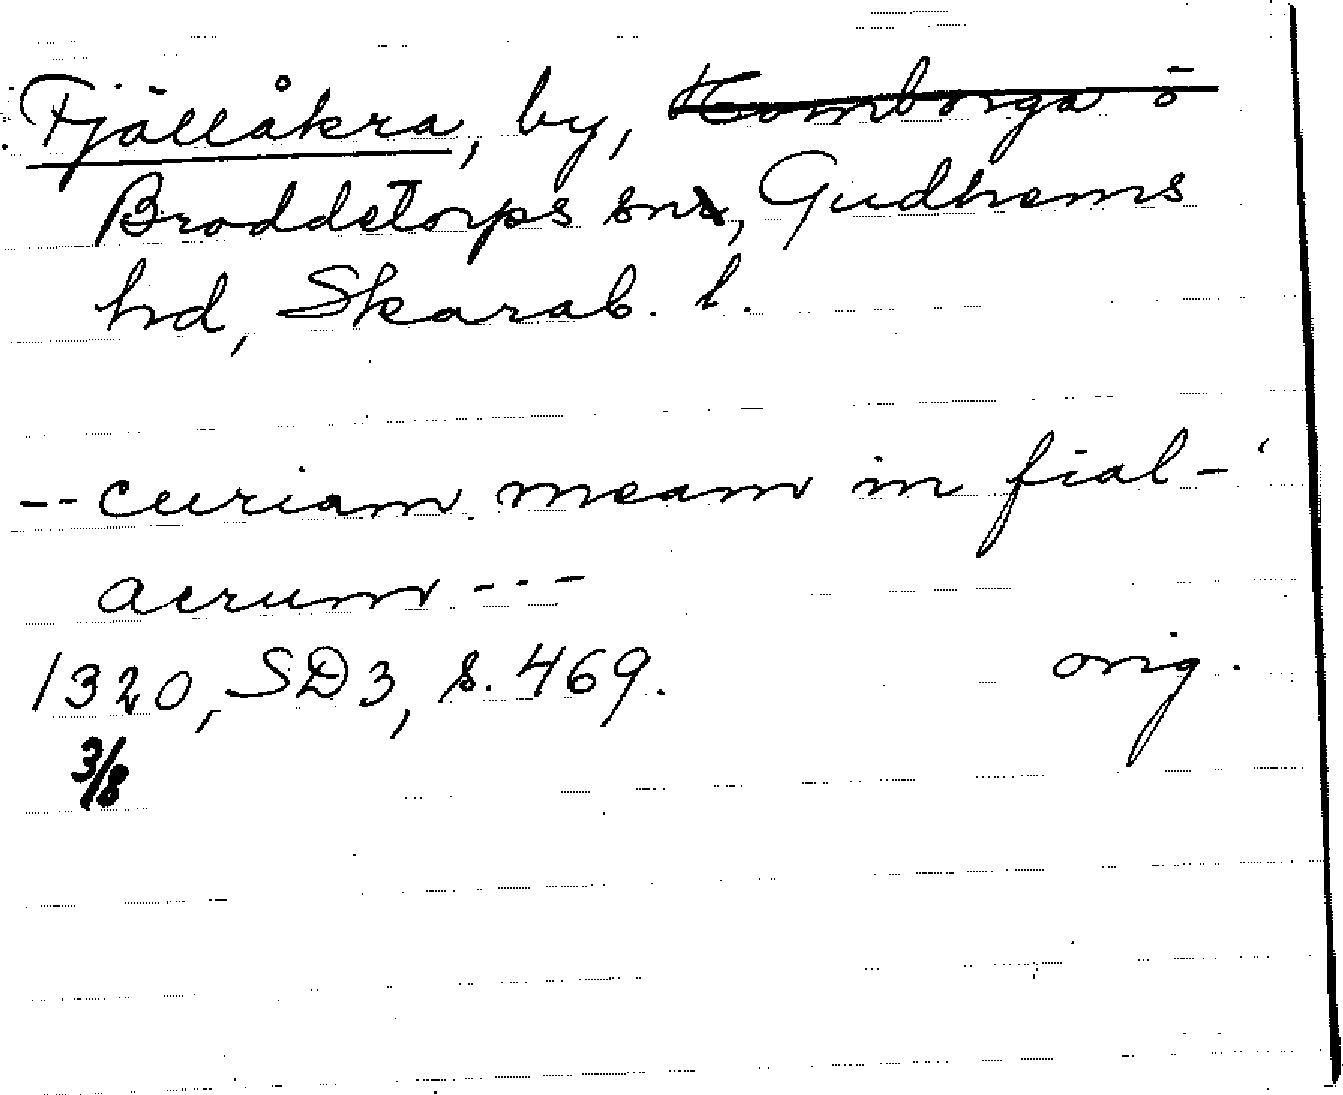 Fjällåkra, by, Kornborga ö
Broddetorps sn, Gudhems
hd, Skarab. l.
-- curiam meam in fial-
acrum ---
1320, SD3, s. 469. orig.
3/8